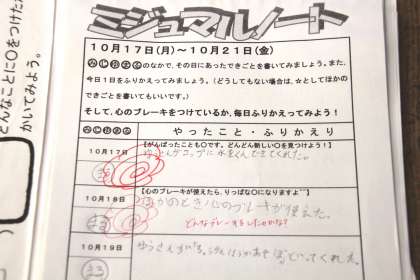 ミジュマルノート
10月17日(月)~10月21日(金)
のなかで、その日にあったできごとを書いてみましょう。また、
今日1日をふりかえってみましょう。(どうしてもない場合は、☆としてほかの
できごとを書いてもいいです。)
そして、心のブレーキをつけているか、毎日ふりかえってみよう!
やったこと・ふりかえり
10月17日
【がんばったことも〇です。どんどん新しい〇を見つけよう!】
コップに水をくんできてくれた。
10月18日
【心のブレーキが使えたら、りっぱな〇になりますよ^^】
のとき心のブレーキが使えた。
どんなブレーキをしたのかな?
10月19日
くれた。
どんなことに〇をつけた
かいてみよう。